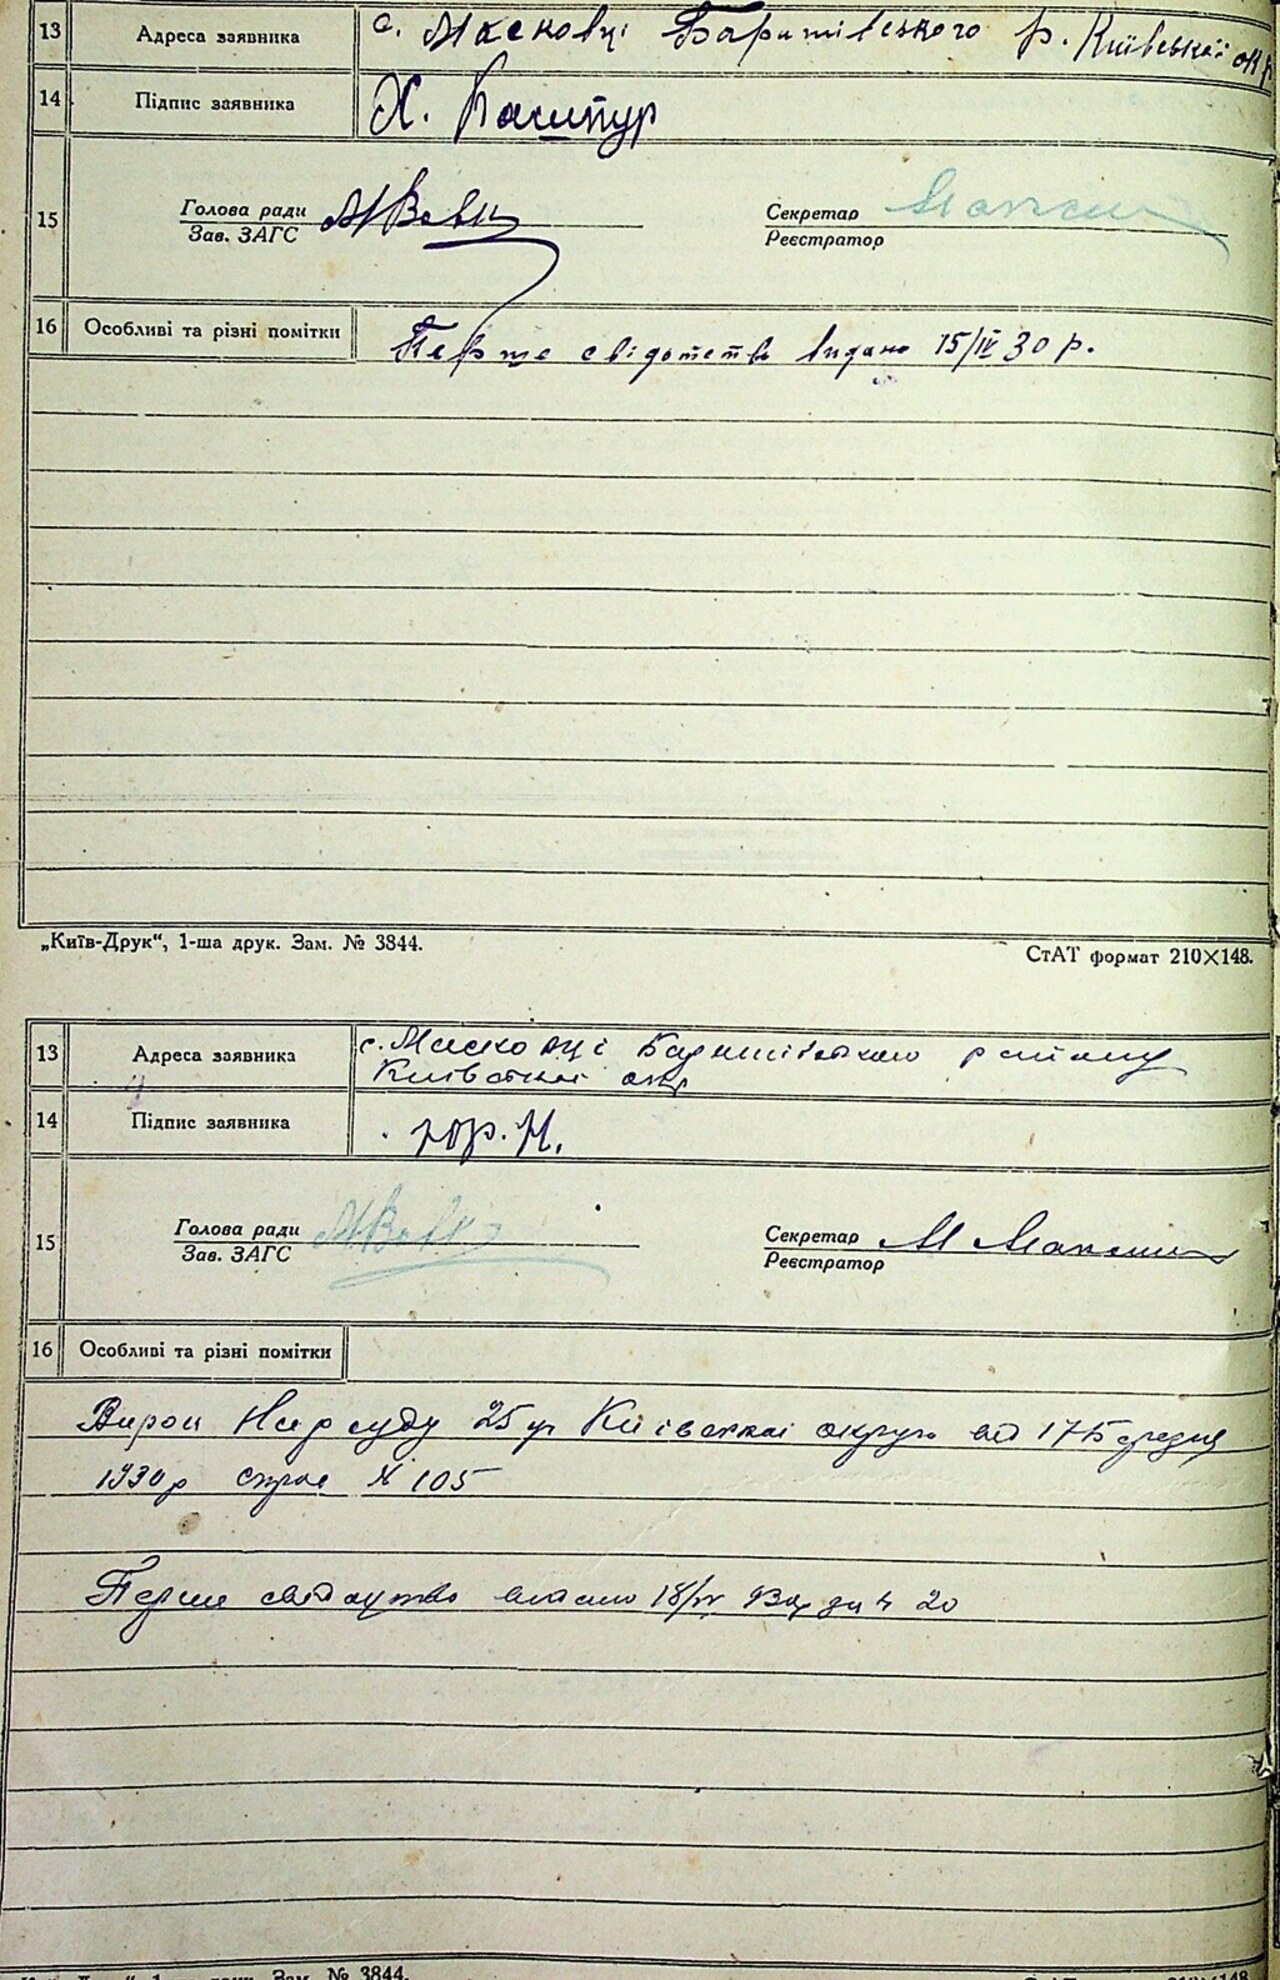 13 Адреса заявника с. Масковці Баришівського р. Київської окр
14 Підпис заявника Х. Баштур
15 Голова ради Секретар
Зав. ЗАГС Реєстратор
16 Особливі та різні помітки Перше свідотств видано 15/IV 30 р.
„Київ-Друк“, 1-ша друк. Зам. № 3844. СтАТ формат 210×148.
13 Адреса заявника с. Масковці Баришівського району
Київської окр
14 Підпис заявника
15 Голова ради Секретар
Зав. ЗАГС Реєстратор
16 Особливі та різні помітки
Вирок Нар суду 25 Київської округи від 17
1930р справ № 105
Перше свідоцтво 18/IV 20
Зам. № 3844.